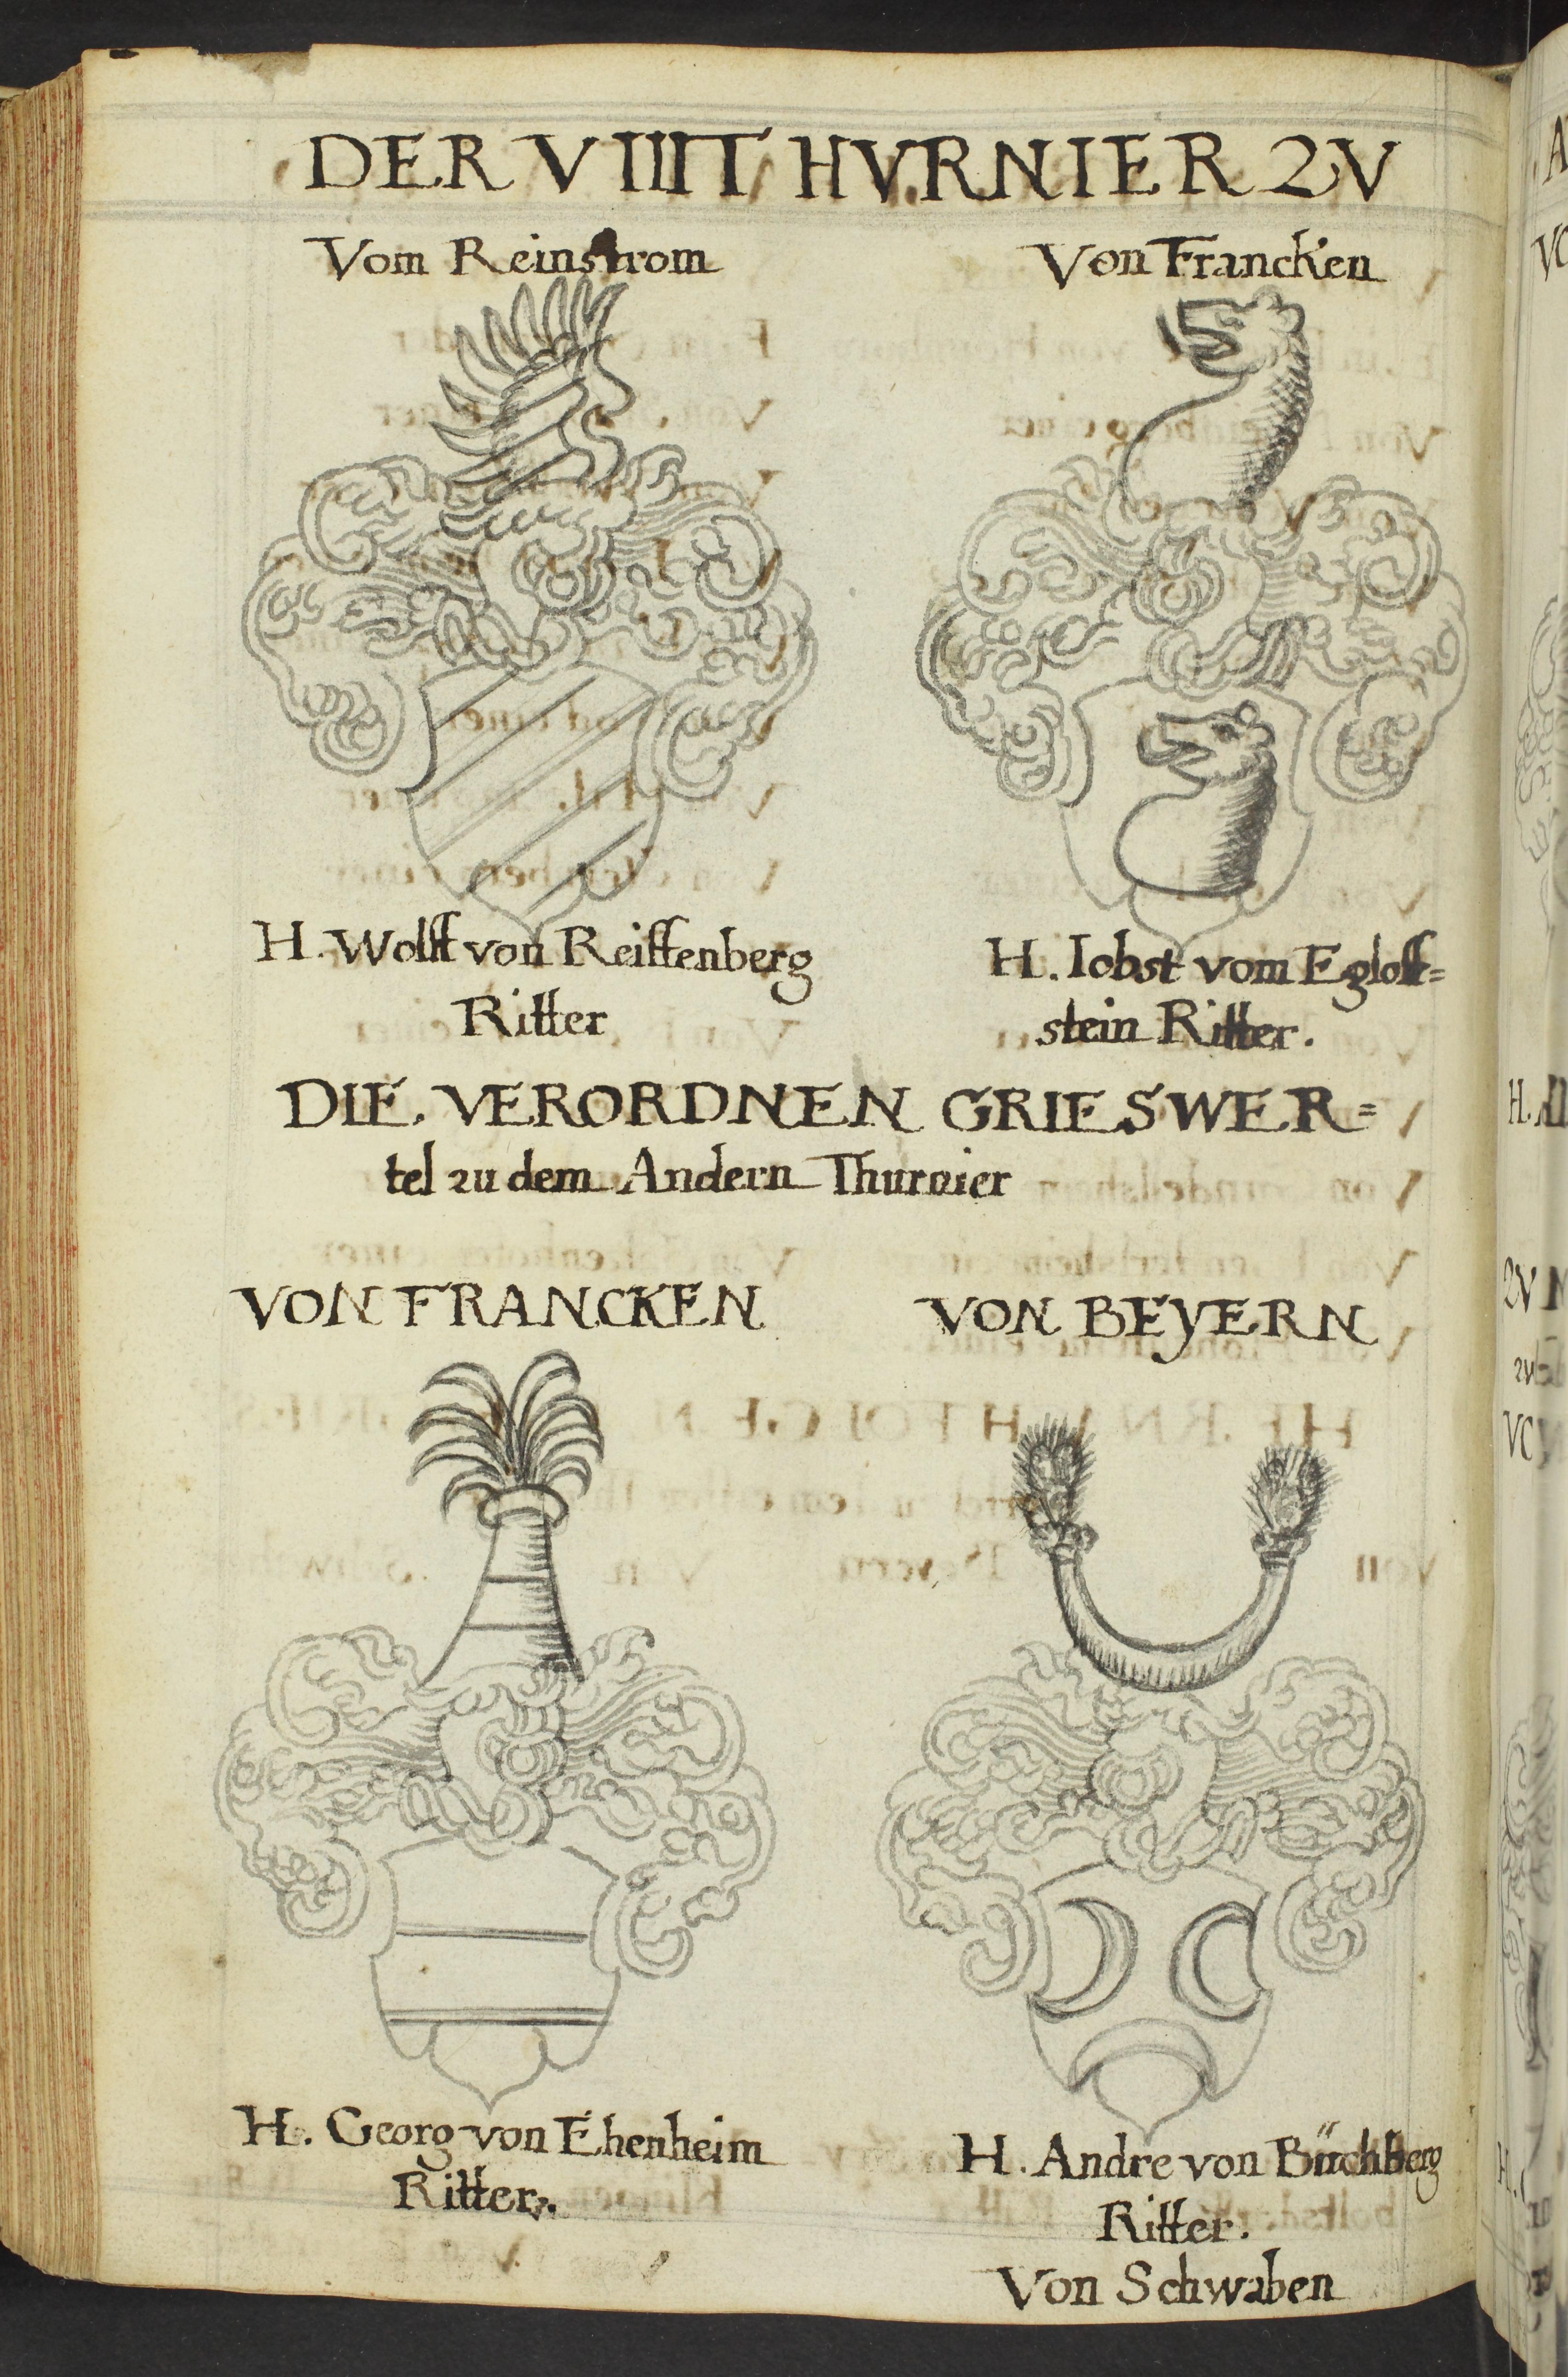 DER VIIII THVRNIER ZV
Vom Reinstrom
Von Francken
H. Wolff von Reiffenberg
Ritter
H. Iobst vom Egloff=
stein Ritter.
DIE VERORDNEN GRIESWER=
tel zu dem Andern Thurnier
VON FRANCKEN
VON BEYERN
H. Georg von Ehenheim
Ritter.
H. Andre von
Ritter.
Von Schwaben